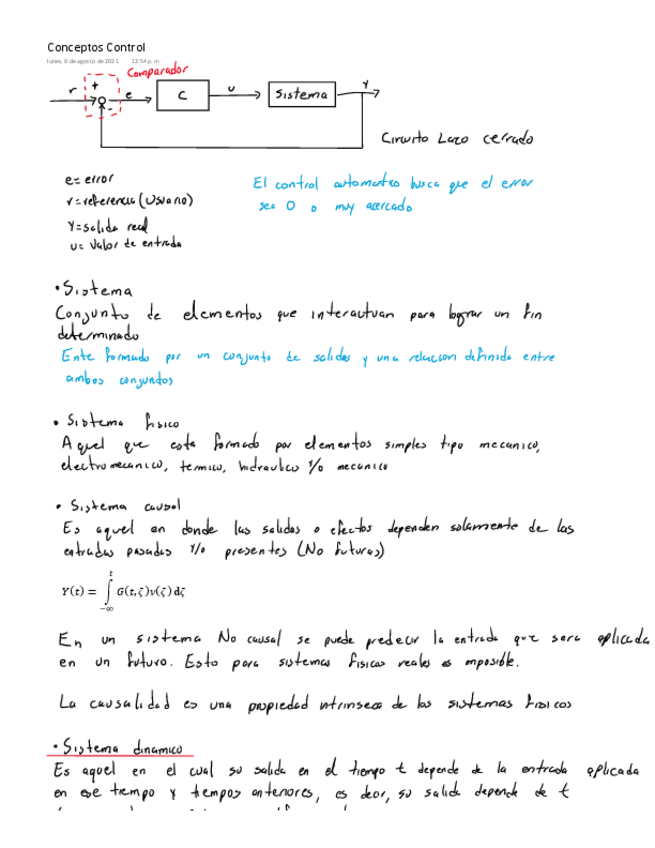 Conceptos Control
lunes, 9 de agosto de 2021 12:54 p. m.
Comparador
r + e C u Sistema Y
-
Circuito Lazo cerrado
e= error
r=referencia (Usuario)
Y=salida real
u= Valor de entrada
El control automatico busca que el error
sea 0 o muy acercado
• Sistema
Conjunto de elementos que interactuan para lograr un fin
determinado
Ente formado por un conjunto de salidas y una relacion definida entre
ambos conjuntos
• Sistema fisico
Aquel que esta formado por elementos simples tipo mecanico,
electromecanico, termico, hidraulico Y/o mecanico
• Sistema causal
Es aquel en donde las salidas o efectos dependen solamente de las
entradas pasadas Y/o presentes (No futuras)
Y(t) = ∫_{-∞}^{t} G(t,ζ)v(ζ) dζ
En un sistema No causal se puede predecir la entrada que sera aplicada
en un futuro. Esto para sistemas fisicos reales es imposible.
La causalidad es una propiedad intrinseca de los sistemas fisicos
• Sistema dinamico
Es aquel en el cual su salida en el tiempo t depende de la entrada aplicada
en ese tiempo y tiempos anteriores, es decir, su salida depende de t